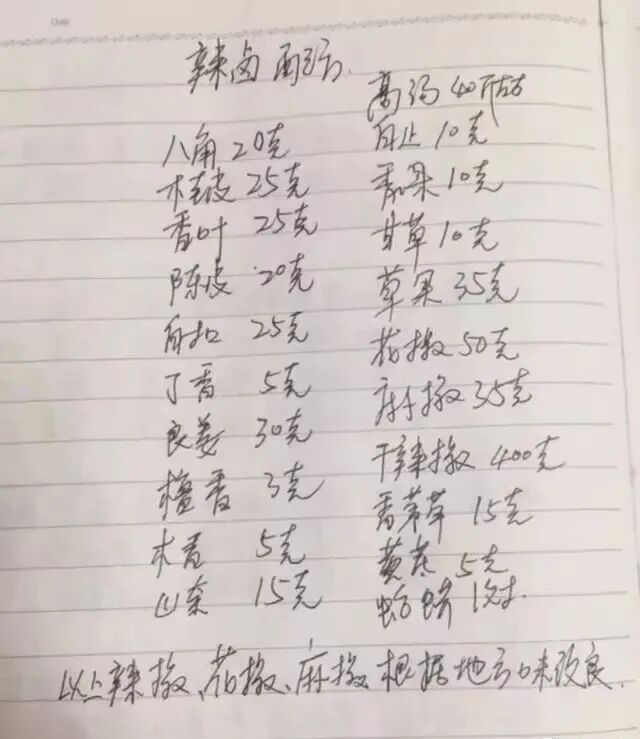 辣卤配方.
八角 20克
桂皮 25克
香叶 25克
陈皮 20克
白扣 25克
丁香 5克
良姜 30克
檀香 3克
木香 5克
山奈 15克
高汤 40斤左右
白止 10克
香果 10克
甘草 10克
草果 35克
花椒 50克
麻椒 35克
干辣椒 400克
香茅草 15克
5克
蛤蚧 1对.
以上辣椒、花椒、麻椒根据地方口味改良.